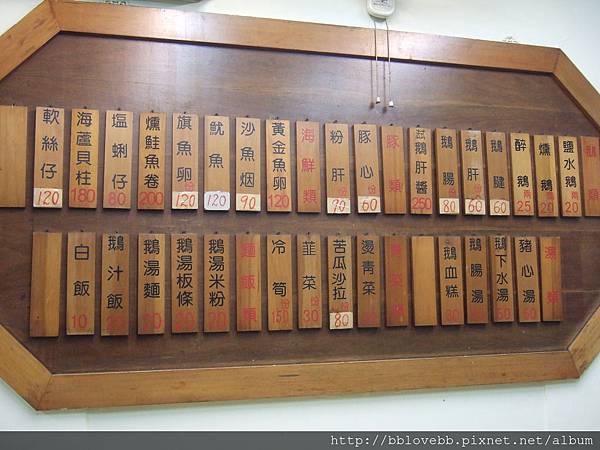 鵝類
鹽水鵝 兩 20
燻鵝 兩 20
醉鵝 兩 25
鵝腱 60
鵝肝 份 60
鵝腸 份 60
鵝肝醬 250
豚類
豚心 份 60
粉肝 份 90
海鮮類
黃金魚卵 120
沙魚烟 90
魷魚 120
旗魚卵 份 120
燻鮭魚卷 200
塩蜊仔 80
海蘆貝柱 180
軟絲仔 120
湯類
豬心湯 50
鵝下水湯
鵝腸湯
鵝血糕
青菜類
燙青菜
苦瓜沙拉 份 80
韮菜 份 30
冷筍 份 150
麵飯類
鵝湯米粉
鵝湯板條
鵝湯麵
鵝汁飯
白飯 10
http://bblovebb.pixnet.net/album